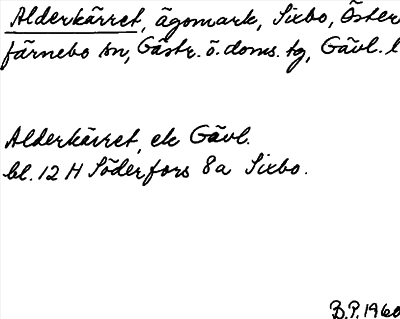 Alderkärret, ägomark, Sixbo, Öster
färnebo sn, Gästr. ö. doms. tg, Gävl. l
Alderkärret, ek Gävl.
bl. 12 H Söderfors 8a Sixbo.
B.P. 1960